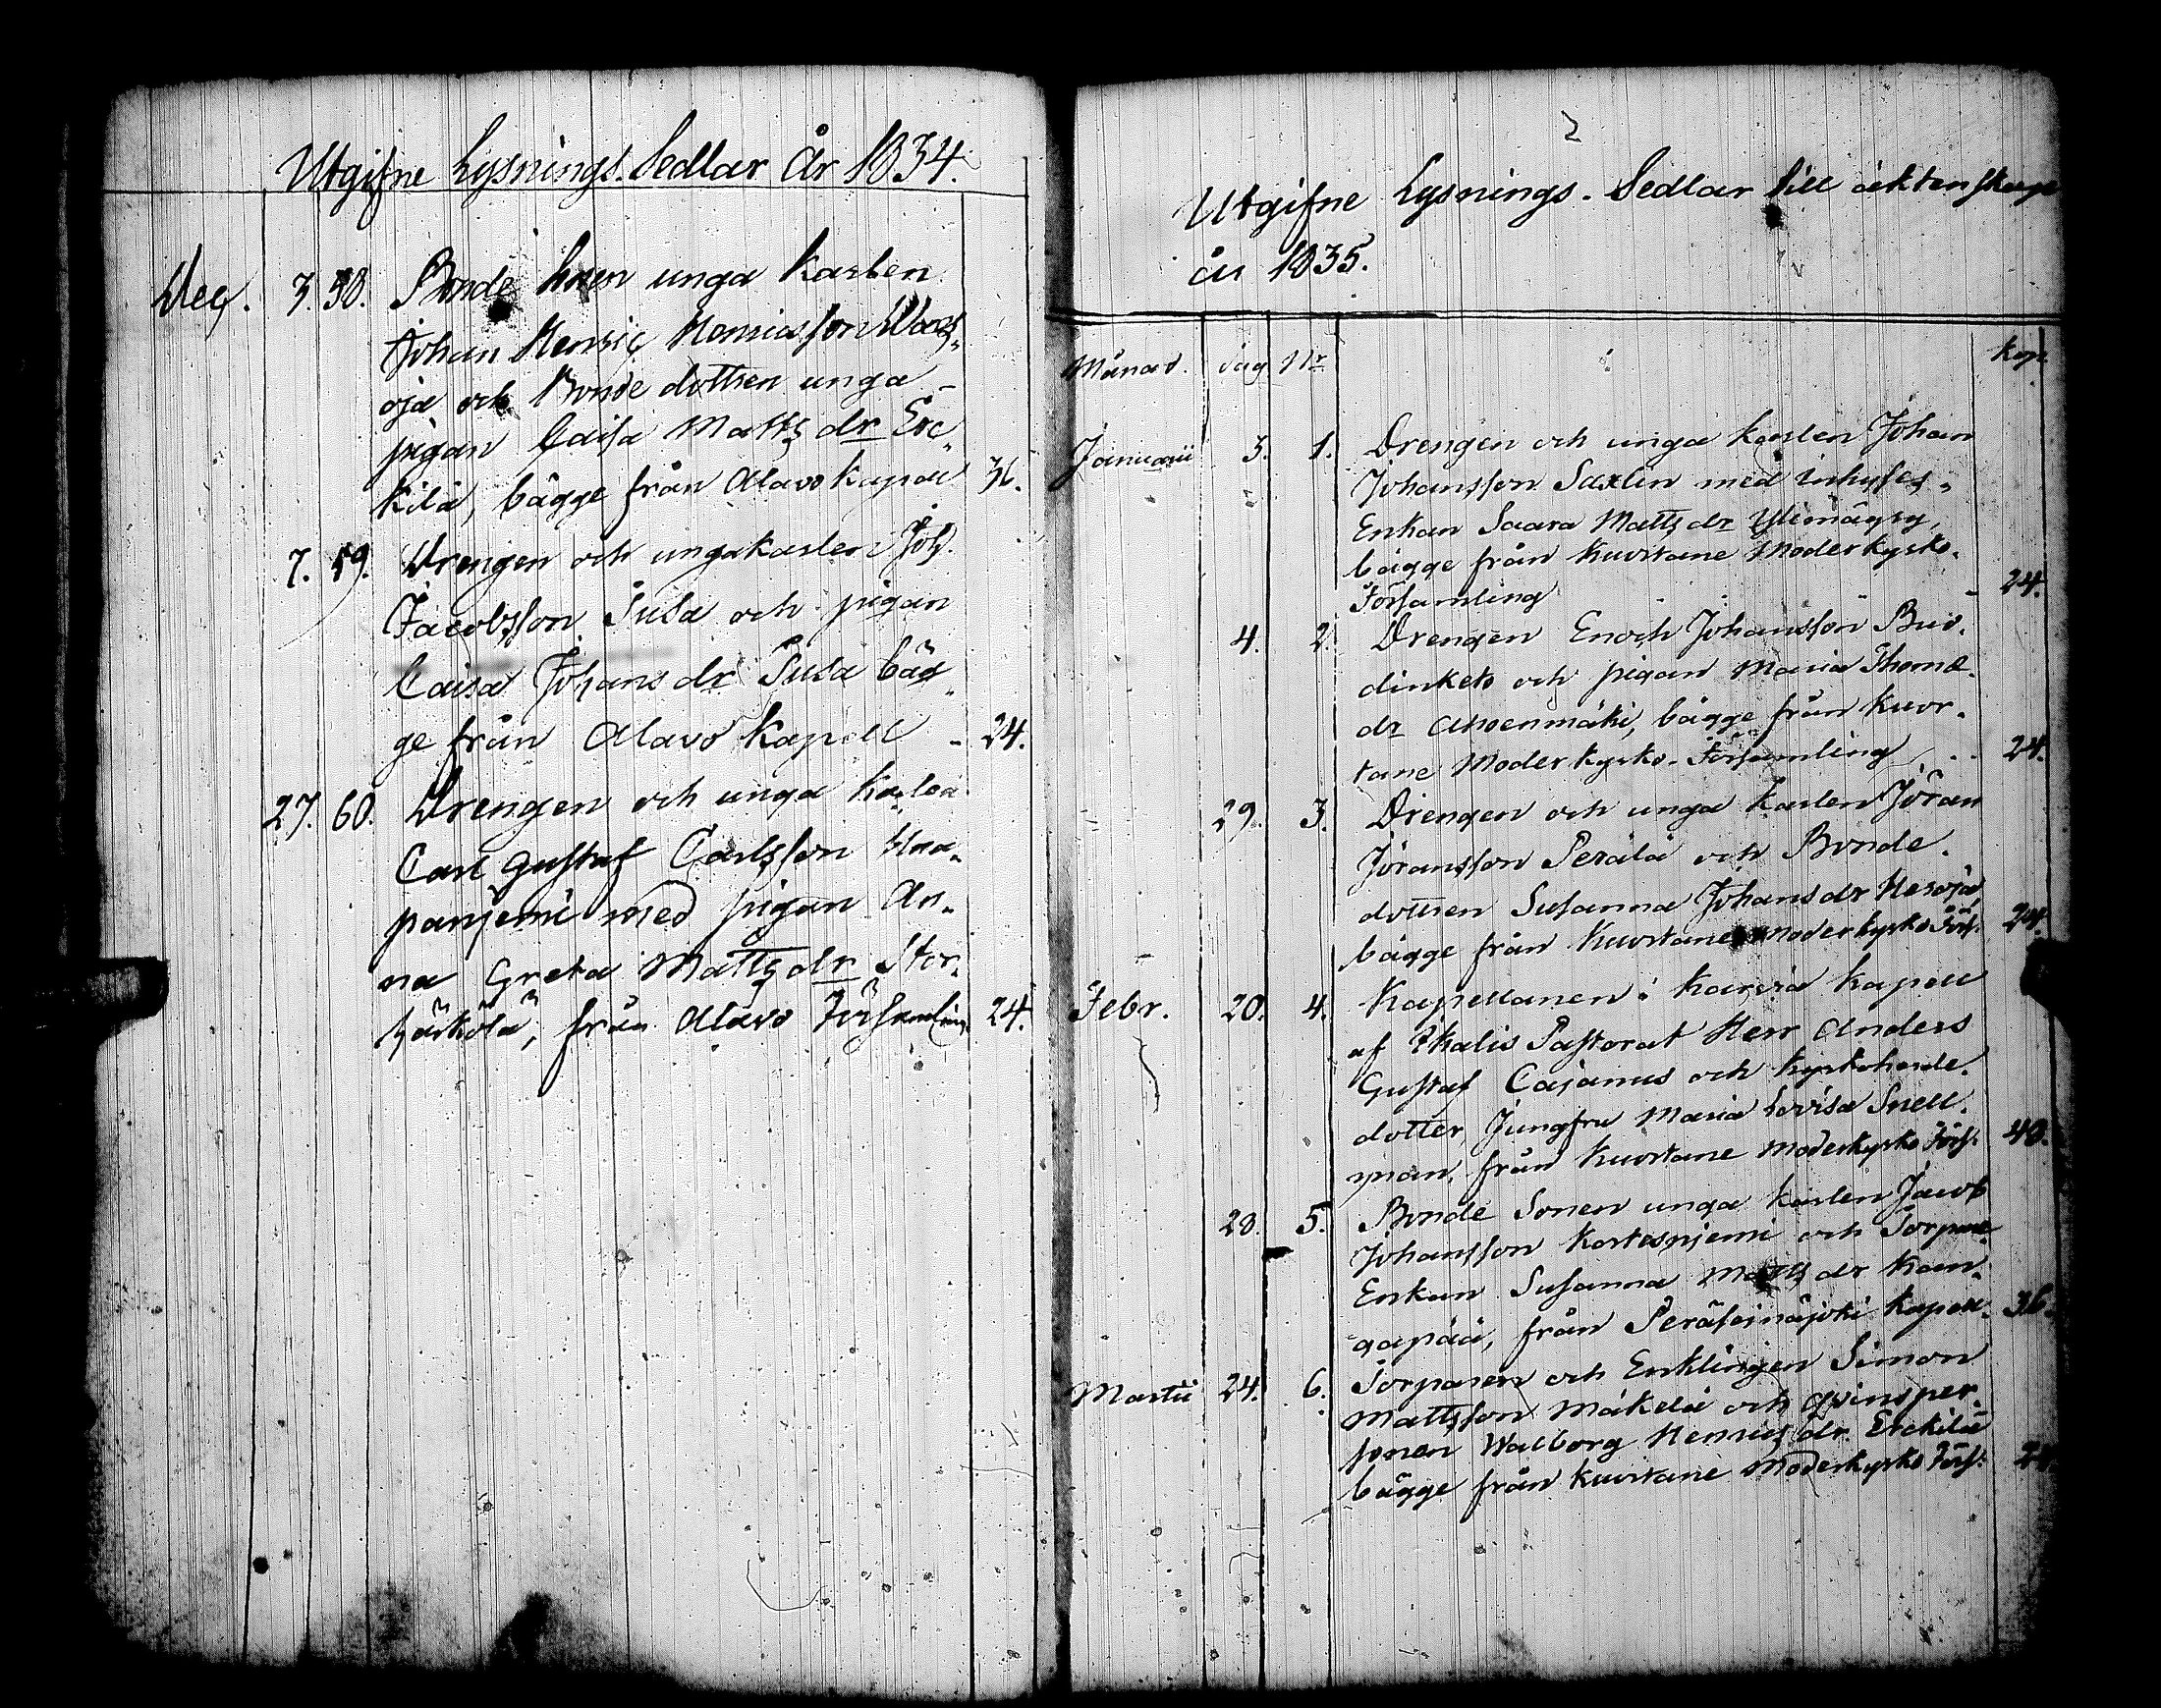 Utgifne Lysnings. Sedlar År 1834.
Dec. 3. 58. Bonde Sonen unga Karlen
Johan Henric Henricsson
oja och Bonde dottren unga
pigan Caisa Matts dr Erc
kilä, bägge från Alavo Kapell 36.
7. 59. Drengen och unga karlen Joh.
Jacobsson Sula och pigan
Caisa Johans dr Sula bäg
ge från Alavo Kapell - 24.
27. 60. Drengen och unga Karlen
Carl Gustaf Carlsson Haa-
panjemi med pigan An-
na Greta Matts dr Stor-
från Alavo Församling 24.
2
Utgifne Lysnings. Sedlar till äktenskap
år 1835.
Månad. dag Nr kop
Januarii 3. 1. Drengen och unga karlen Johan
Johansson Saxlin med Inhyses-
Enkan Saara Matts dr
bägge från Kuortane Moderkyrko-
Församling - 24.
4. 2. Drengen Enoch Johansson Bus-
dinkets och pigan Maria Thomæ-
dr Ahvenmäki, bägge från Kuor-
tane Moderkyrko-Församling - - 24.
29. 3. Drengen och unga karlen Jöran
Jöransson Perälä och Bonde-
dottren Susanna Johans dr Herroja,
bägge från Kuortane Moderkyrko Förs. 24.
Febr. 20. 4. Kapellanen i Karvia Kapell
af Ikalis Pastorat Herr Anders
Gustaf Cajanus och Kyrkoherde-
dotter, Jungfru Maria Lovisa Snell-
man, från Kuortane Moderkyrko Förs. 48.
28. 5. Bonde Sonen unga karlen Jacob
Johansson Kortesnjemi och Torpare
Enkan Susanna Matts dr Kan-
gapää, från Peräseinäjoki Kapell. 36.
Martii 24. 6. Torparen och Enklingen Simon
Mattsson Mäkelä och Qvinsper-
sonen Walborg Henrics dr Erckilä
bägge från Kuortane Moderkyrko Förs. 24.